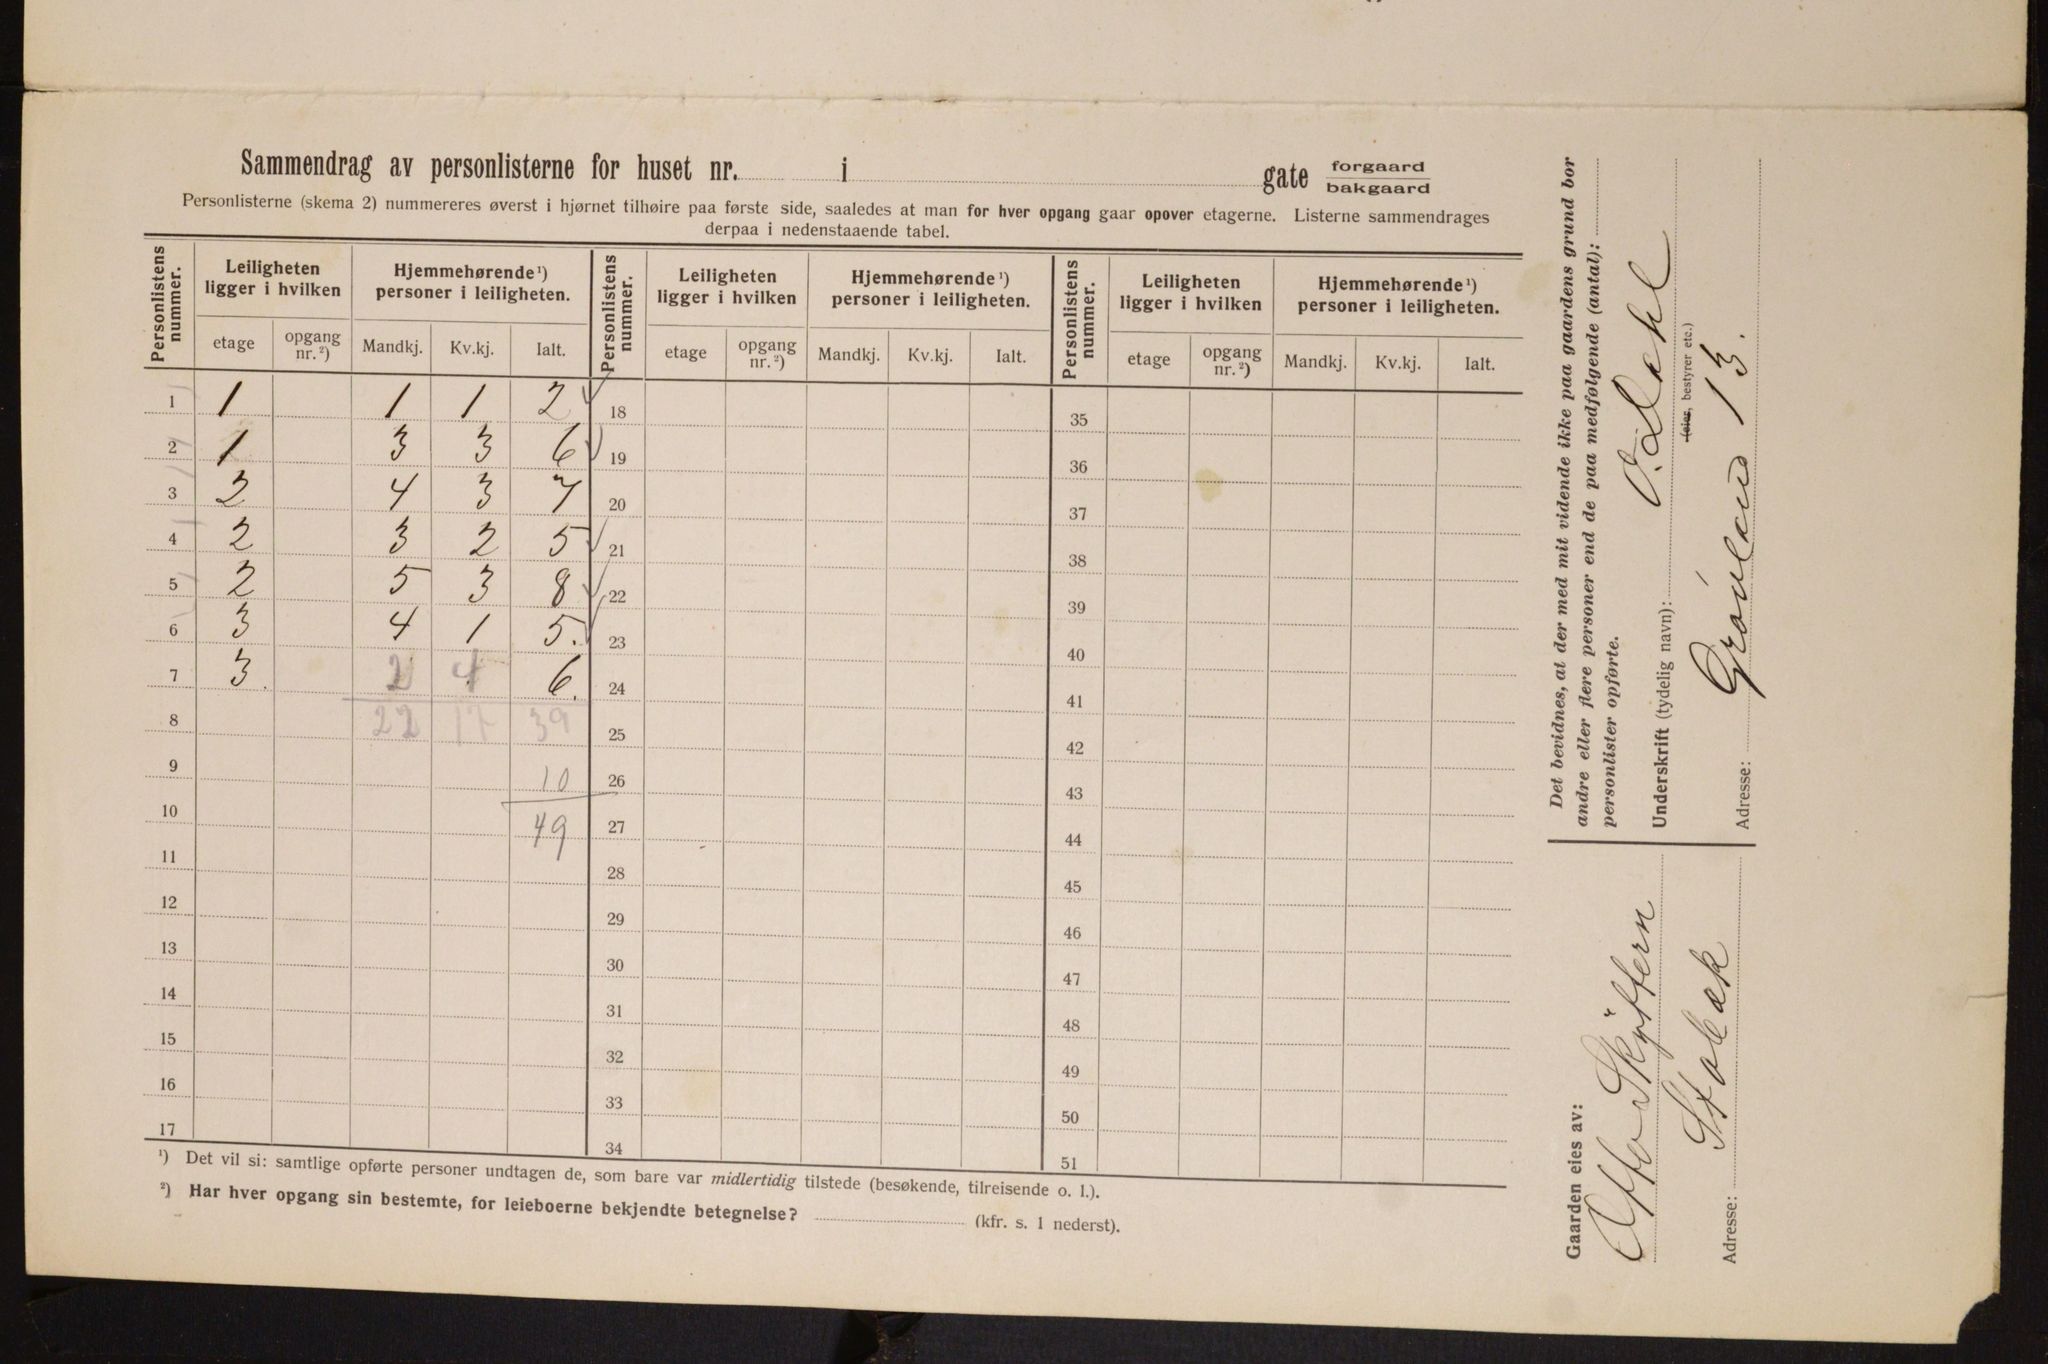 Sammendrag av personlisterne for huset nr. i gate forgaard bakgaard
Personlisterne (skema 2) nummereres øverst i hjørnet tilhøire paa første side, saaledes at man for hver opgang gaar opover etagerne. Listerne sammendrages
derpaa i nedenstaaende tabel.
Personlistens nummer. Leiligheten ligger i hvilken Hjemmehørende ¹) personer i leiligheten. Personlistens nummer. Leiligheten ligger i hvilken Hjemmehørende ¹) personer i leiligheten. Personlistens nummer. Leiligheten ligger i hvilken Hjemmehørende ¹) personer i leiligheten.
etage opgang nr. ²) Mandkj. Kv.kj. Ialt. etage opgang nr. ²) Mandkj. Kv.kj. Ialt. etage opgang nr. ²) Mandkj. Kv.kj. Ialt.
1 1 1 1 2 18 35
2 1 3 3 6 19 36
3 2 4 3 7 20 37
4 2 3 2 5 21 38
5 2 5 3 8 22 39
6 3 4 1 5. 23 40
7 3. 2 4 6. 24 41
8 22 17 39 25 42
9 10 26 43
10 49 27 44
11 28 45
12 29 46
13 30 47
14 31 48
15 32 49
16 33 50
17 34 51
¹) Det vil si: samtlige opførte personer undtagen de, som bare var midlertidig tilstede (besøkende, tilreisende o. l.).
²) Har hver opgang sin bestemte, for leieboerne bekjendte betegnelse? (kfr. s. 1 nederst).
Gaarden eies av:
Skyttern
Stabæk
Adresse:
Det bevidnes, at der med mit vidende ikke paa gaardens grund bor
andre eller flere personer end de paa medfølgende (antal):
personlister opførte.
Underskrift (tydelig navn):
(eier, bestyrer etc.)
Adresse: Grönland 13.